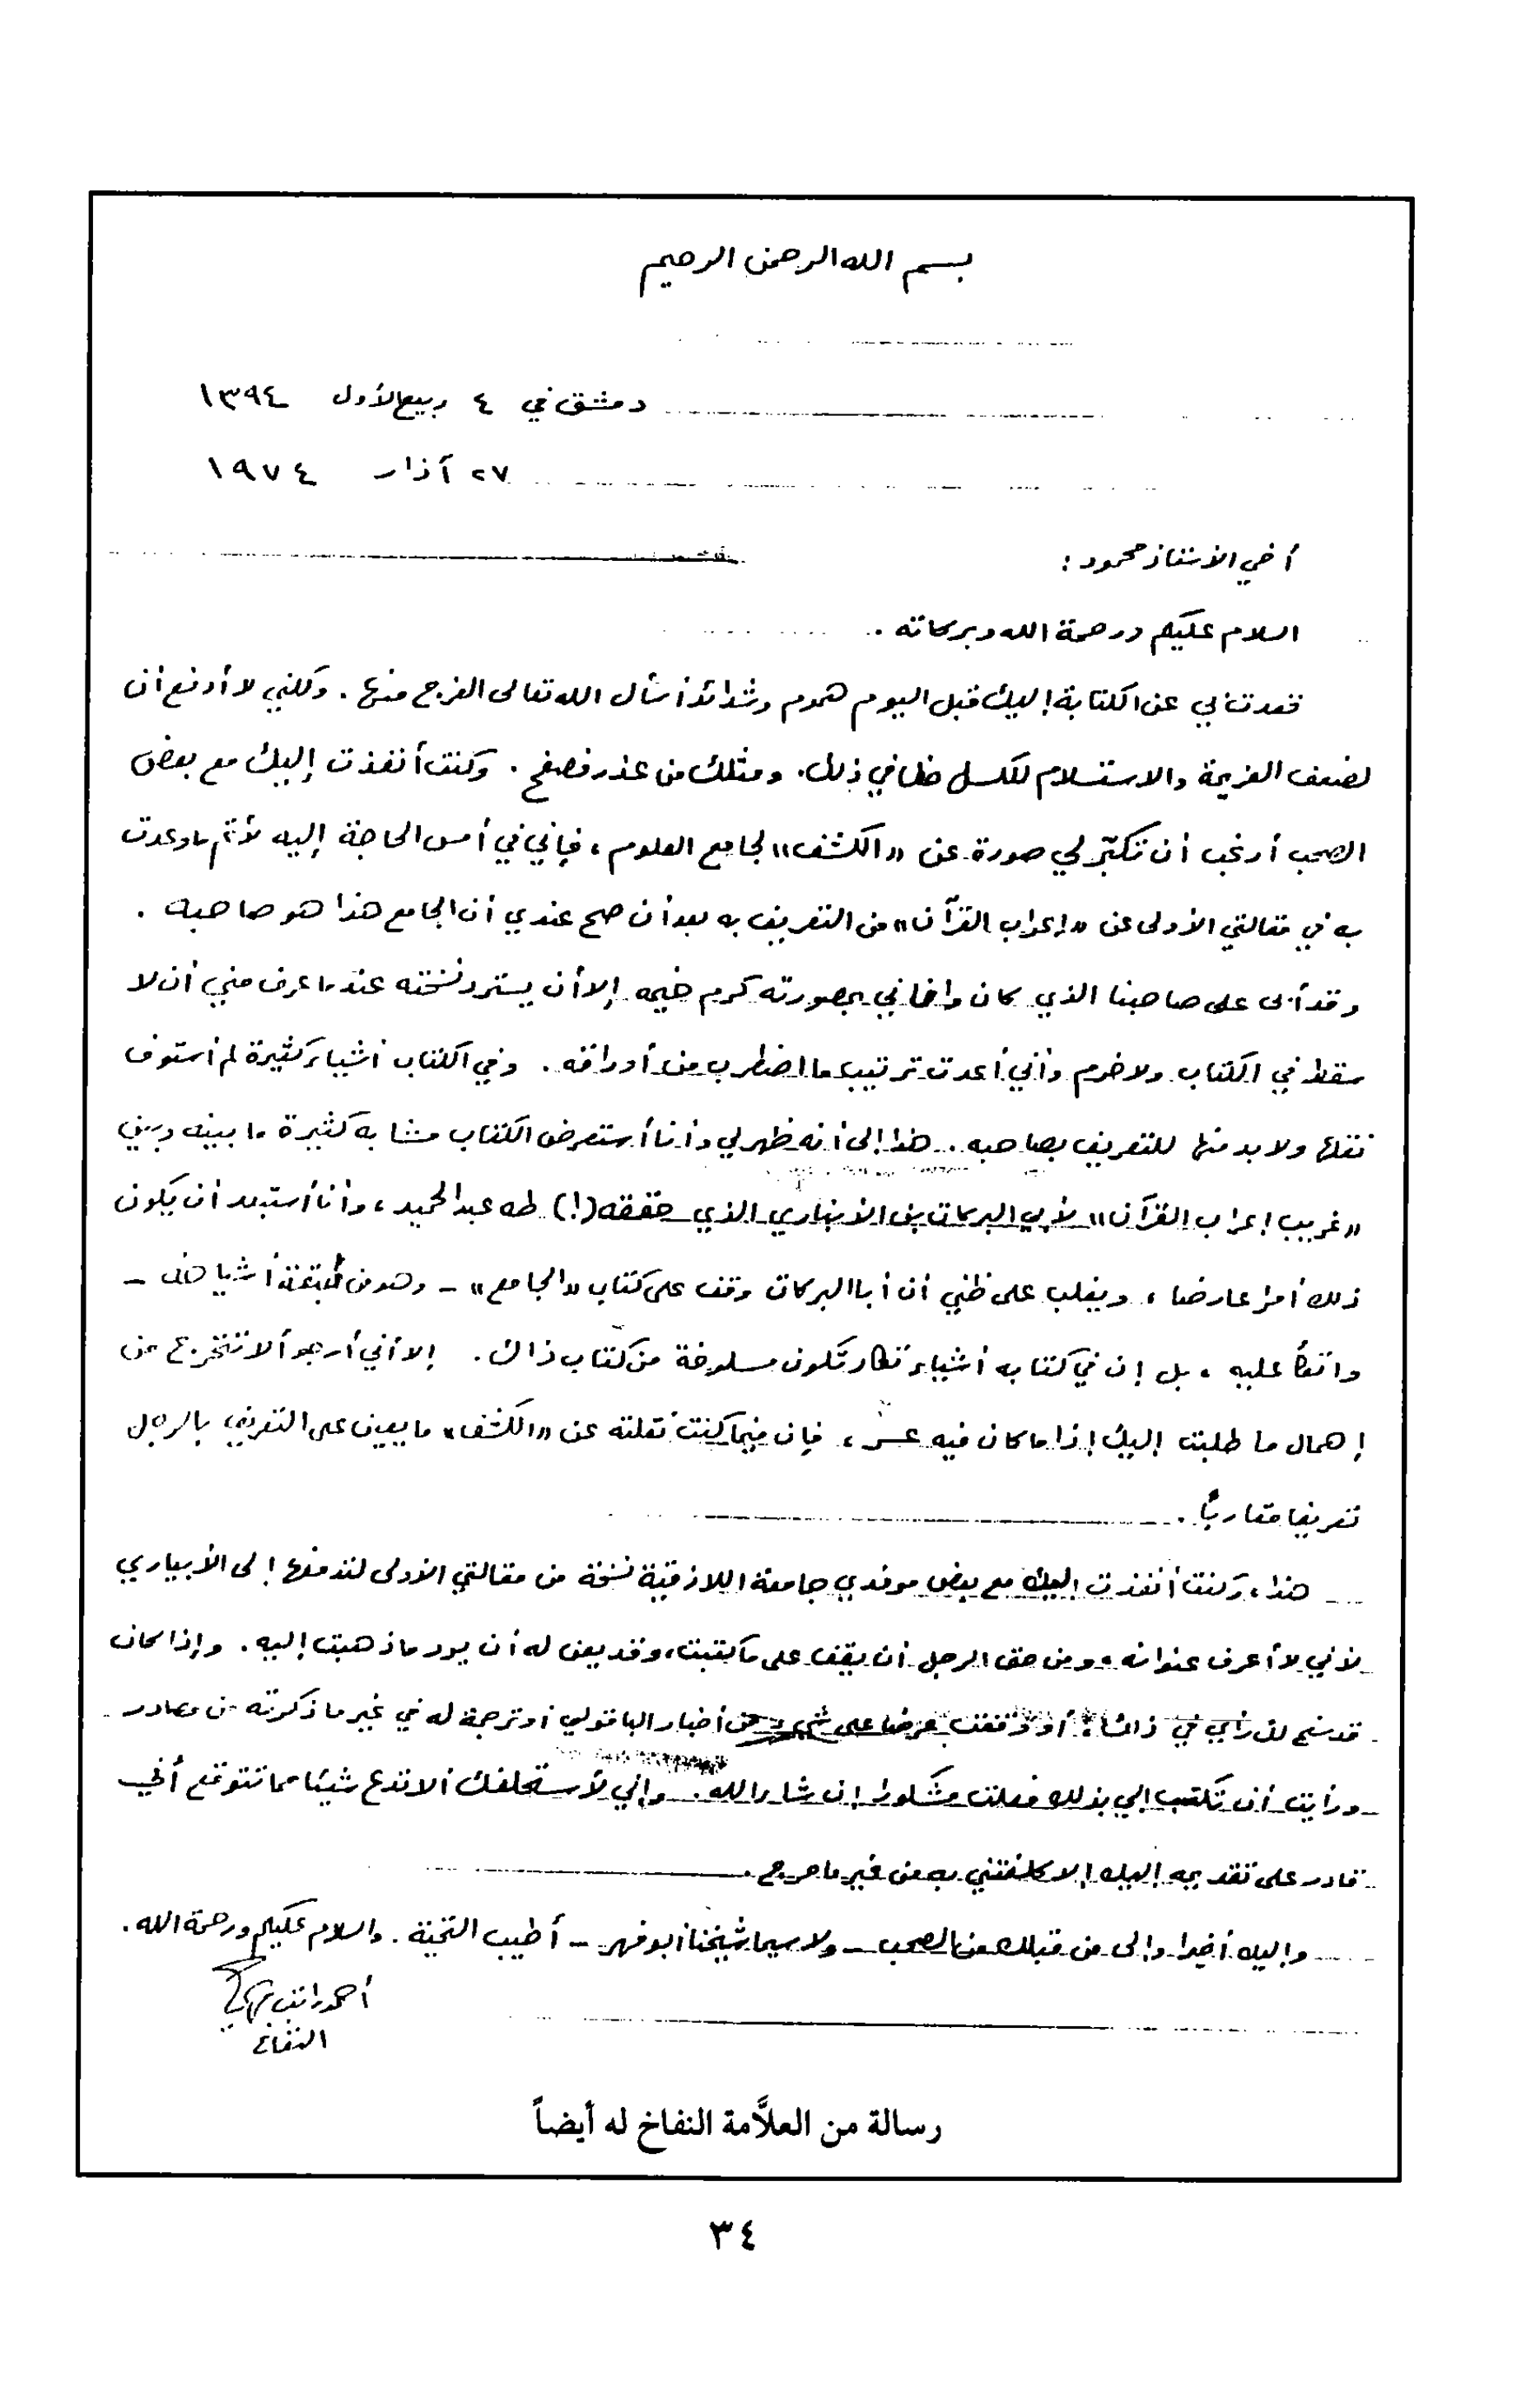 بسم الله الرحمن الرحيم
دمشق في ٤ ربيع الأول ١٣٩٤
٢٧ آذار ١٩٧٤
أخي الأستاذ محمود :
السلام عليكم ورحمة الله وبركاته .
قعدت بي عن الكتابة إليك قبل اليوم هموم وشدائد أسأل الله تعالى الفرج منها . ولكني لا أدفع أن
لضعف العزيمة والاستسلام للكسل حظا في ذلك . ومثلك من عذر فصفح . وكنت أنفذت إليك مع بعض
الصحب أرغب أن تكبّر لي صورة عن «الكشف» لجامع العلوم ، فإني في أمس الحاجة إليه لأتم ما وعدت
به في مقالتي الأولى عن «إعراب القرآن» من التعريف به بعد أن صح عندي أن الجامع هذا هو صاحبه .
وقد أبى على صاحبنا الذي كان وافاني بمصورته كرم خيمه إلا أن يسترد نسخته عندما عرف مني أن لا
سقط في الكتاب ولا خرم وأني أعدت ترتيب ما اضطرب من أوراقه . وفي الكتاب أشياء كثيرة لم أستوف
نقلها ولا بد منها للتعريف بصاحبه . هذا إلى أنه ظهر لي وأنا أستعرض الكتاب مشابه كثيرة ما بينه وبين
«غريب إعراب القرآن» لأبي البركات بن الأنباري الذي حققه (!) طه عبد الحميد ، وأنا أستبعد أن يكون
ذلك أمرا عارضا ، ويغلب على ظني أن أبا البركات وقف على كتاب «الجامع» - وهو من طبقة أشياخه -
واتكأ عليه ، بل إن في كتابه أشياء تكاد تكون مسلوخة من كتاب ذاك . إلا أني أرجو ألا تتحرج من
إهمال ما طلبت إليك إذا ما كان فيه عسر ، فإن فيما كنت نقلته عن «الكشف» ما يعين على التعريف بالرجل
تعريفا مقاربًا .
هذا ، وكنت أنفذت إليك مع بعض موفدي جامعة اللاذقية نسخة من مقالتي الأولى لتدفعها إلى الأبياري
لأني لا أعرف عنوانه ، ومن حق الرجل أن يقف على ما كتبت ، وقد يعن له أن يرد ما ذهبت إليه . وإذا كان
قد سنح لك رأي في ذلك ، أو وقفت عرضا على شيء من أخبار الباقولي أو ترجمة له في غير ما ذكرته من مصادر
ورأيت أن تكتب إلي بذلك فعلت مشكورا إن شاء الله . وإني لأستحلفك ألا تدع شيئا مما تتوقع أني
قادر على تقديمه إليك إلا كلفتني به من غير ما حرج .
وإليك أخيرا وإلى من قبلك من الصحب - ولا سيما شيخنا أبو فهر - أطيب التحية . والسلام عليكم ورحمة الله .
أحمد راتب
النفاخ
رسالة من العلاَّمة النفاخ له أيضاً
٣٤